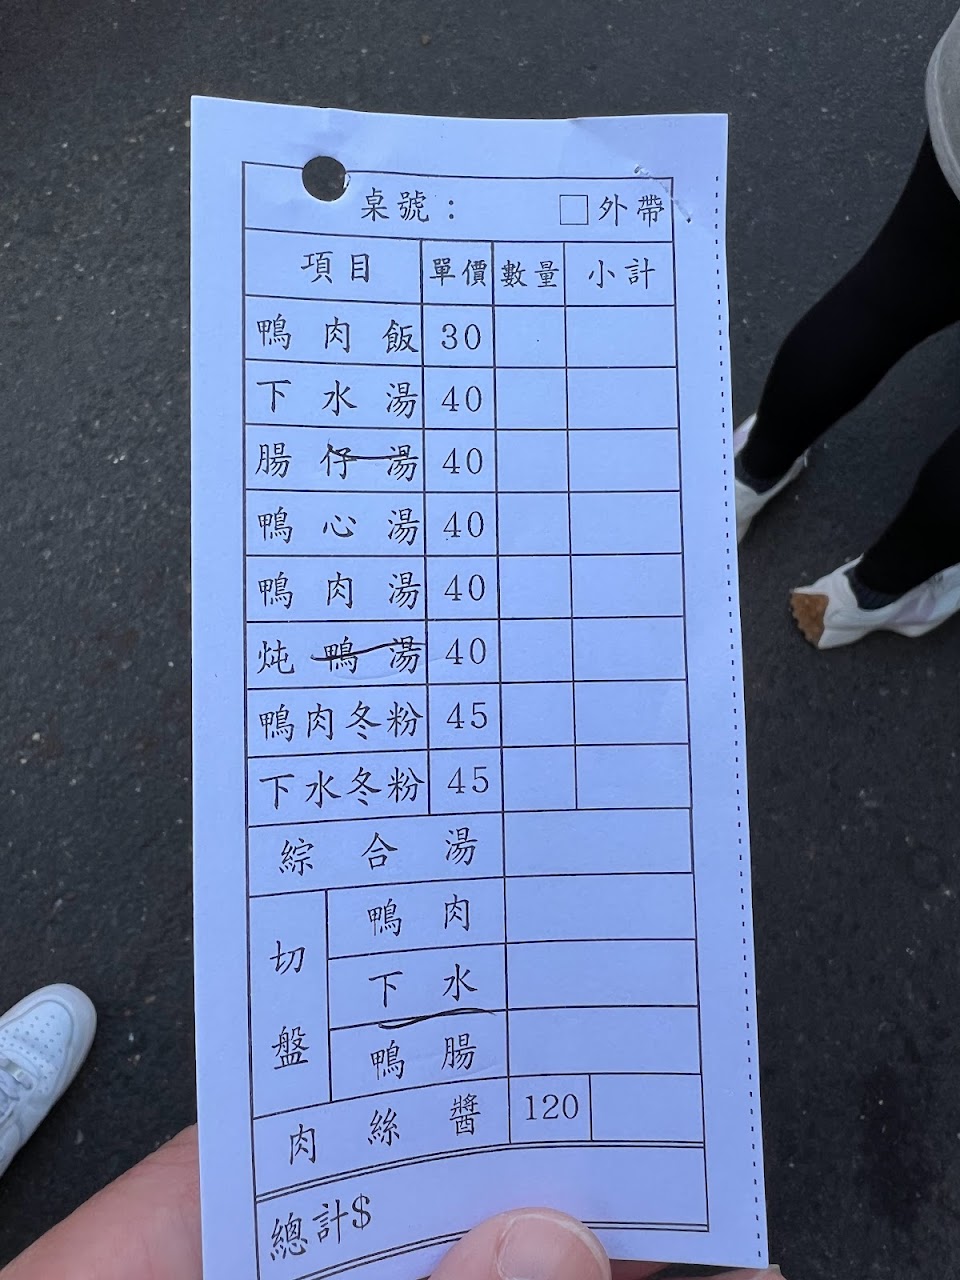 桌號： □外帶
項目 單價 數量 小計
鴨肉飯 30
下水湯 40
腸仔湯 40
鴨心湯 40
鴨肉湯 40
炖鴨湯 40
鴨肉冬粉 45
下水冬粉 45
綜合湯
切盤
鴨肉
下水
鴨腸
肉絲醬 120
總計$